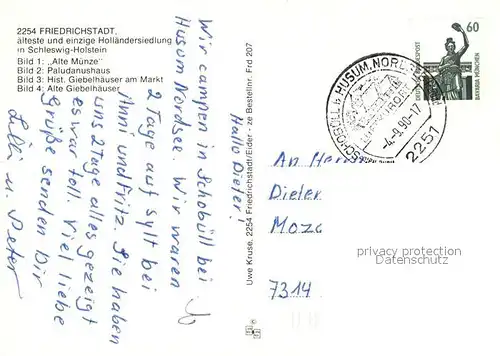 2254 FRIEDRICHSTADT,
älteste und einzige Holländersiedlung
in Schleswig-Holstein
Bild 1: „Alte Münze"
Bild 2: Paludanushaus
Bild 3: Hist. Giebelhäuser am Markt
Bild 4: Alte Giebelhäuser
Hallo Dieter!
Wir campen in Schobüll bei
Husum Nordsee. Wir waren
2 Tage auf Sylt bei
Anni und Fritz. Sie haben
uns 2 Tage alles gezeigt
es war toll. Viel liebe
Grüße senden Dir
Lilli u. Peter
Uwe Kruse, 2254 Friedrichstadt/Eider - ze Bestellnr. Frd 207
SCHOBÜLL b HUSUM, NORL
-4.-9.90-17
2251
60
BAVARIA MÜNCHEN
An Herrn
Dieter
Moza
7314
privacy protection
Datenschutz